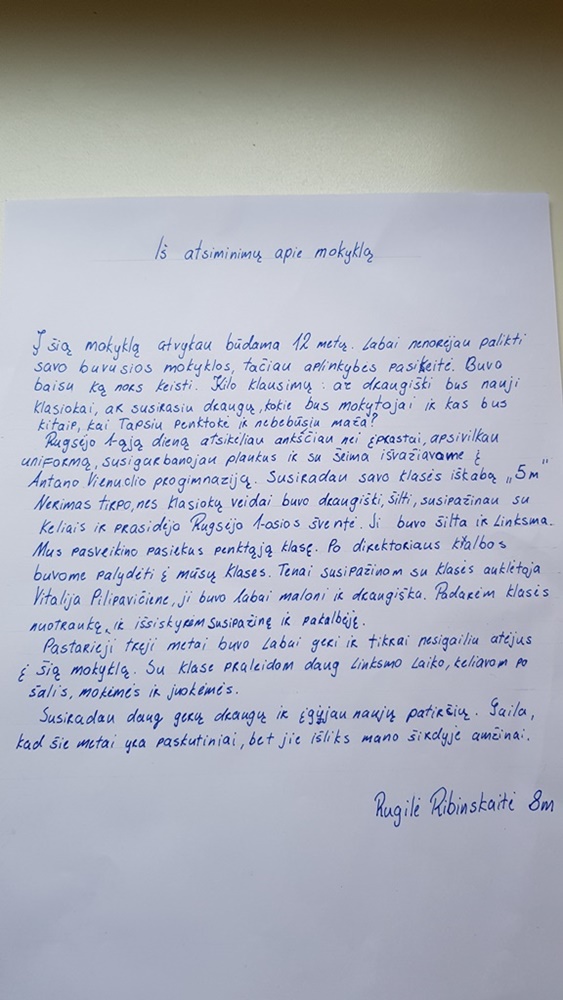 Iš atsiminimų apie mokyklą
Į šią mokyklą atvykau būdama 12 metų. Labai nenorėjau palikti
savo buvusios mokyklos, tačiau aplinkybės pasikeitė. Buvo
baisu ką nors keisti. Kilo klausimų: ar draugiški bus nauji
klasiokai, ar susirasiu draugų, kokie bus mokytojai ir kas bus
kitaip, kai Tapsiu penktokė ir nebebūsiu maža?
Rugsėjo 1-ąją dieną atsikėliau anksčiau nei įprastai, apsivilkau
uniformą, susigarbanojau plaukus ir su šeima išvažiavome į
Antano Vienuolio progimnaziją. Susiradau savo klasės iškabą „5m"
Nerimas tirpo, nes klasiokų veidai buvo draugiški, šilti, susipažinau su
keliais ir prasidėjo Rugsėjo 1-osios šventė. Ji buvo šilta ir Linksma.
Mus pasveikino pasiekus penktąją klasę. Po direktoriaus kalbos
buvome palydėti į mūsų klases. Tenai susipažinom su klasės auklėtoja
Vitalija Pilipavičiene, ji buvo labai maloni ir draugiška. Padarėm klasės
nuotrauką, ir išsiskyrėm susipažinę ir pakalbėję.
Pastarieji treji metai buvo Labai geri ir tikrai nesigailiu atėjus
į šią mokyklą. Su klase praleidom daug Linksmo Laiko, keliavom po
šalis, mokėmės ir juokėmės.
Susiradau daug gerų draugų ir įgyjau naujų patirčių. Gaila,
kad šie metai yra paskutiniai, bet jie išliks mano širdyje amžinai.
Rugilė Ribinskaitė 8m